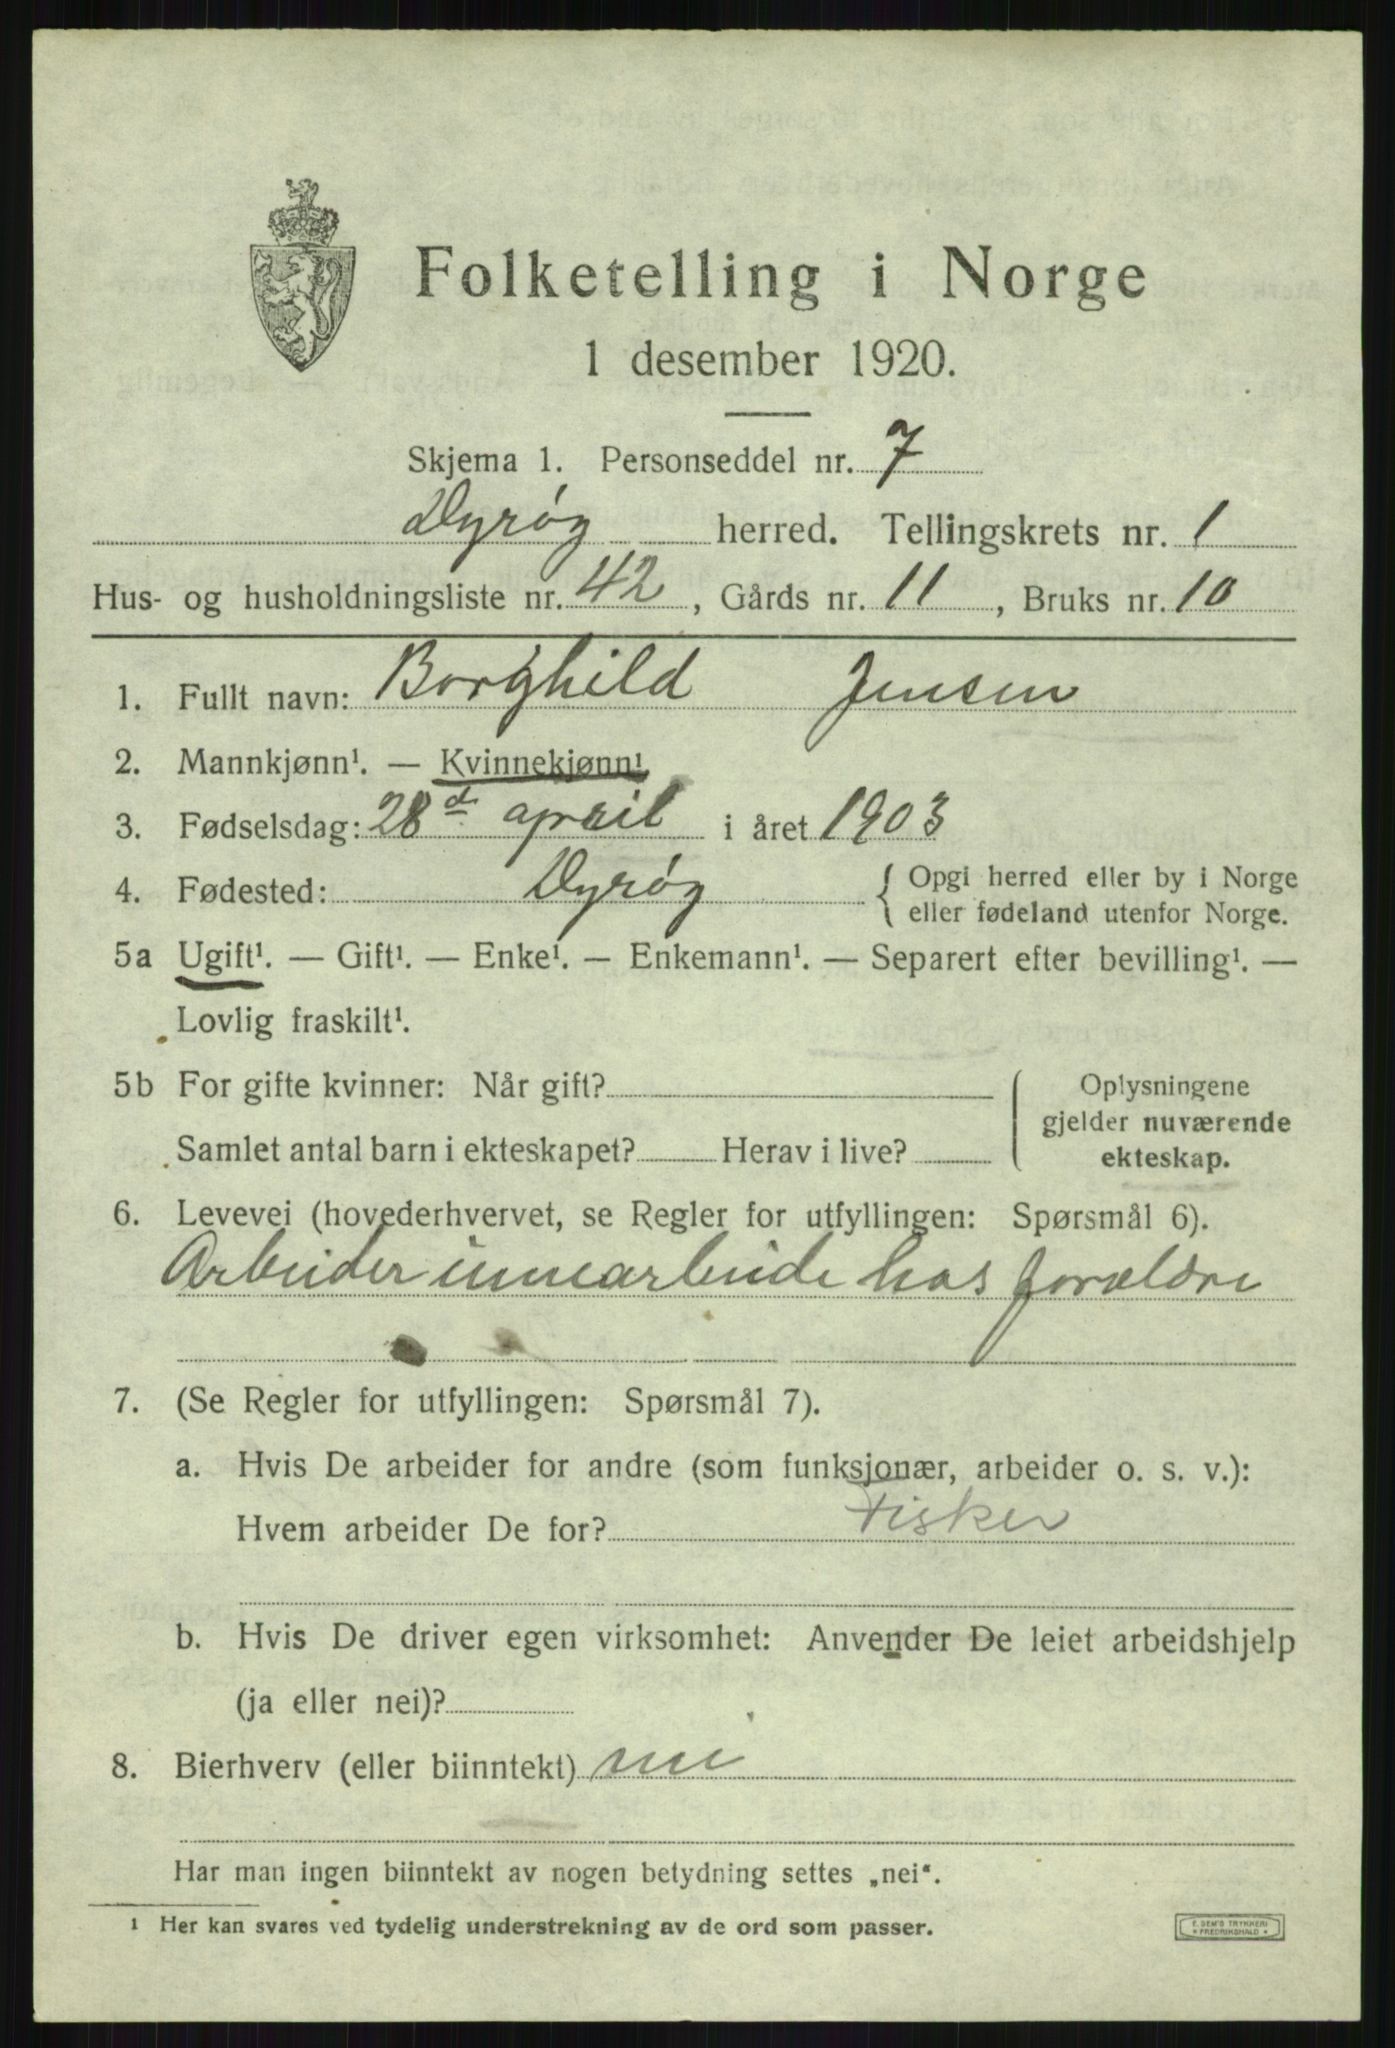 Folketelling i Norge
1 desember 1920.
Skjema 1. Personseddel nr. 7
Dyrøy herred. Tellingskrets nr. 1
Hus- og husholdningsliste nr. 42, Gårds nr. 11, Bruks nr. 10
1. Fullt navn: Borghild Jensen
2. Mannkjønn¹. — Kvinnekjønn¹
3. Fødselsdag: 28de april i året 1903
4. Fødested: Dyrøy { Opgi herred eller by i Norge
eller fødeland utenfor Norge.
5a Ugift¹. — Gift¹. — Enke¹. — Enkemann¹. — Separert efter bevilling¹. —
Lovlig fraskilt¹.
5b For gifte kvinner: Når gift?
Samlet antal barn i ekteskapet? Herav i live?
Oplysningene
gjelder nuværende
ekteskap.
6. Levevei (hovederhvervet, se Regler for utfyllingen: Spørsmål 6).
Arbeider innearbeide hos forældre
7. (Se Regler for utfyllingen: Spørsmål 7).
a. Hvis De arbeider for andre (som funksjonær, arbeider o. s. v.):
Hvem arbeider De for? Fisker
b. Hvis De driver egen virksomhet: Anvender De leiet arbeidshjelp
(ja eller nei)?
8. Bierhverv (eller biinntekt) nei
Har man ingen biinntekt av nogen betydning settes „nei“.
1 Her kan svares ved tydelig understrekning av de ord som passer.
E. SEM'S TRYKKERI
* FREDRIKSHALD *